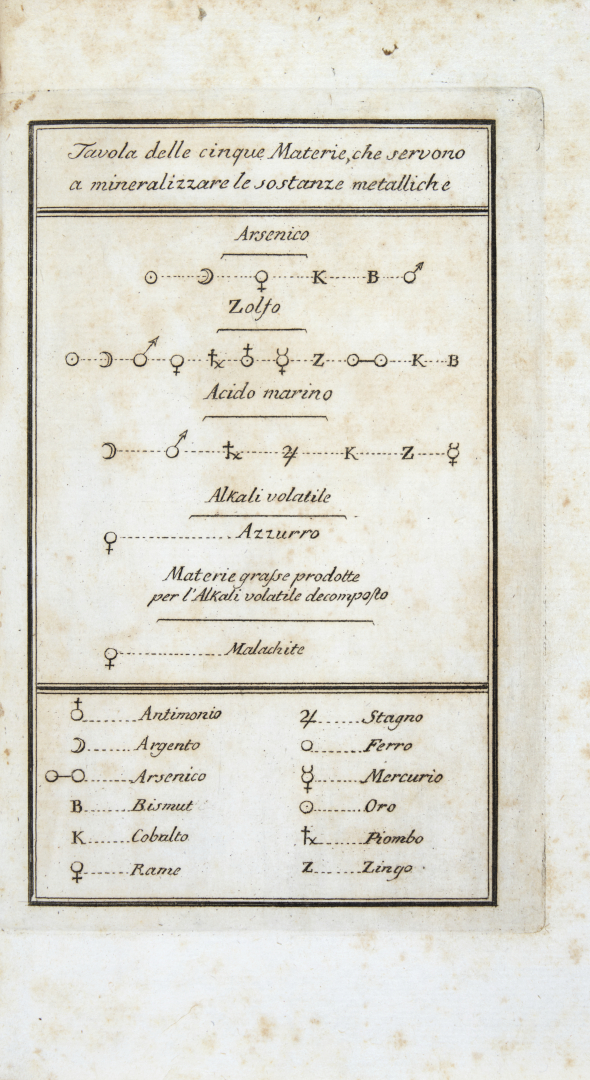 Tavola delle cinque Materie, che servono
a mineralizzare le sostanze metalliche
Arsenico
☉ ☽ ♀ K B ♂
Zolfo
☉ ☽ ♂ ♀ ♄ ♁ ☿ Z o-o K B
Acido marino
☽ ♂ ♄ ♃ K Z ☿
Alkali volatile
♀ Azzurro
Materie grasse prodotte
per l'Alkali volatile decomposto
♀ Malachite
♁ Antimonio
☽ Argento
o-o Arsenico
B Bismut
K Cobalto
♀ Rame
♃ Stagno
○ Ferro
☿ Mercurio
☉ Oro
♄ Piombo
Z Zingo